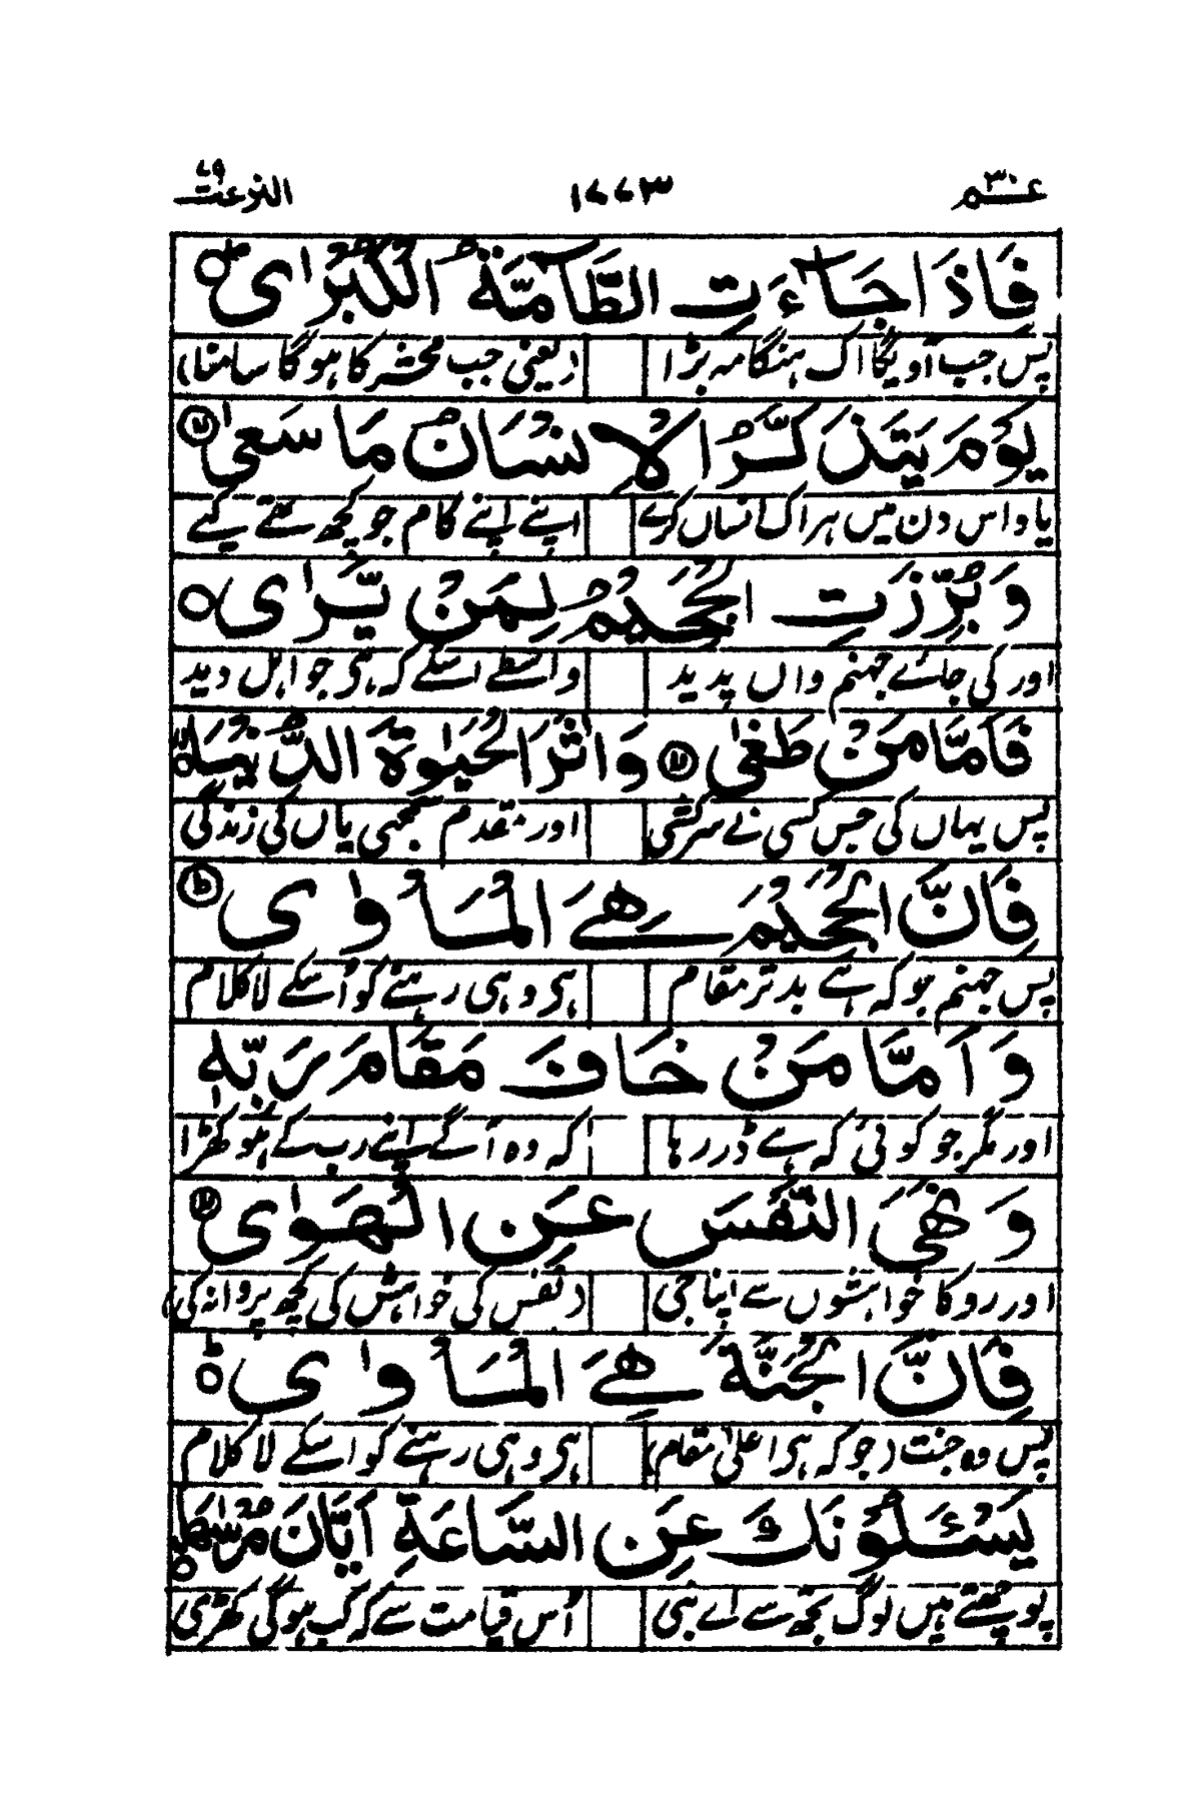 عــم ۳۰ ۱۷۷۳ النزعت ۷۹
فَاِذَا جَآءَتِ الطَّآمَّةُ الْكُبْرٰى ۖ
پس جب آویگا اک ہنگامہ بڑا (یعنی جب محشر کا ہوگا سامنا)
يَوْمَ يَتَذَكَّرُ الْاِنْسَانُ مَا سَعٰى ۙ
یاد اس دن میں ہر اک انساں کرے اپنے اپنے کام جو کچھ تھے کیے
وَ بُرِّزَتِ الْجَحِيْمُ لِمَنْ يَّرٰى ○
اور کی جائے جہنم واں پدید واسطے اسکے کہ ہی جو اہل دید
فَاَمَّا مَنْ طَغٰى ۙ وَ اٰثَرَ الْحَيٰوةَ الدُّنْيَا ۙ
پس یہاں کی جس کسی نے سرکشی اور مقدم سمجھی یاں کی زندگی
فَاِنَّ الْجَحِيْمَ هِىَ الْمَاْوٰى ؕ
پس جہنم جو کہ ہے بدتر مقام ہی وہی رہنے کو اُسکے لا کلام
وَ اَمَّا مَنْ خَافَ مَقَامَ رَبِّهٖ
اور مگر جو کوئی کہ ہے ڈر رہا کہ وہ آگے اپنے رب کے ہو کھڑا
وَ نَهَى النَّفْسَ عَنِ الْهَوٰى ۙ
اور روکا خواہشوں سے اپنا جی (نفس کی خواہش کی کچھ پروا نہ کی)
فَاِنَّ الْجَنَّةَ هِىَ الْمَاْوٰى ؕ
پس وہ جنت (جو کہ ہی اعلیٰ مقام) ہی وہی رہنے کو اسکے لا کلام
يَسْـَٔلُوْنَكَ عَنِ السَّاعَةِ اَيَّانَ مُرْسٰهَا ؕ
پوچھتے ہیں لوگ تجھ سے اے نبی اُس قیامت سے کہ کب ہوگی کھڑی